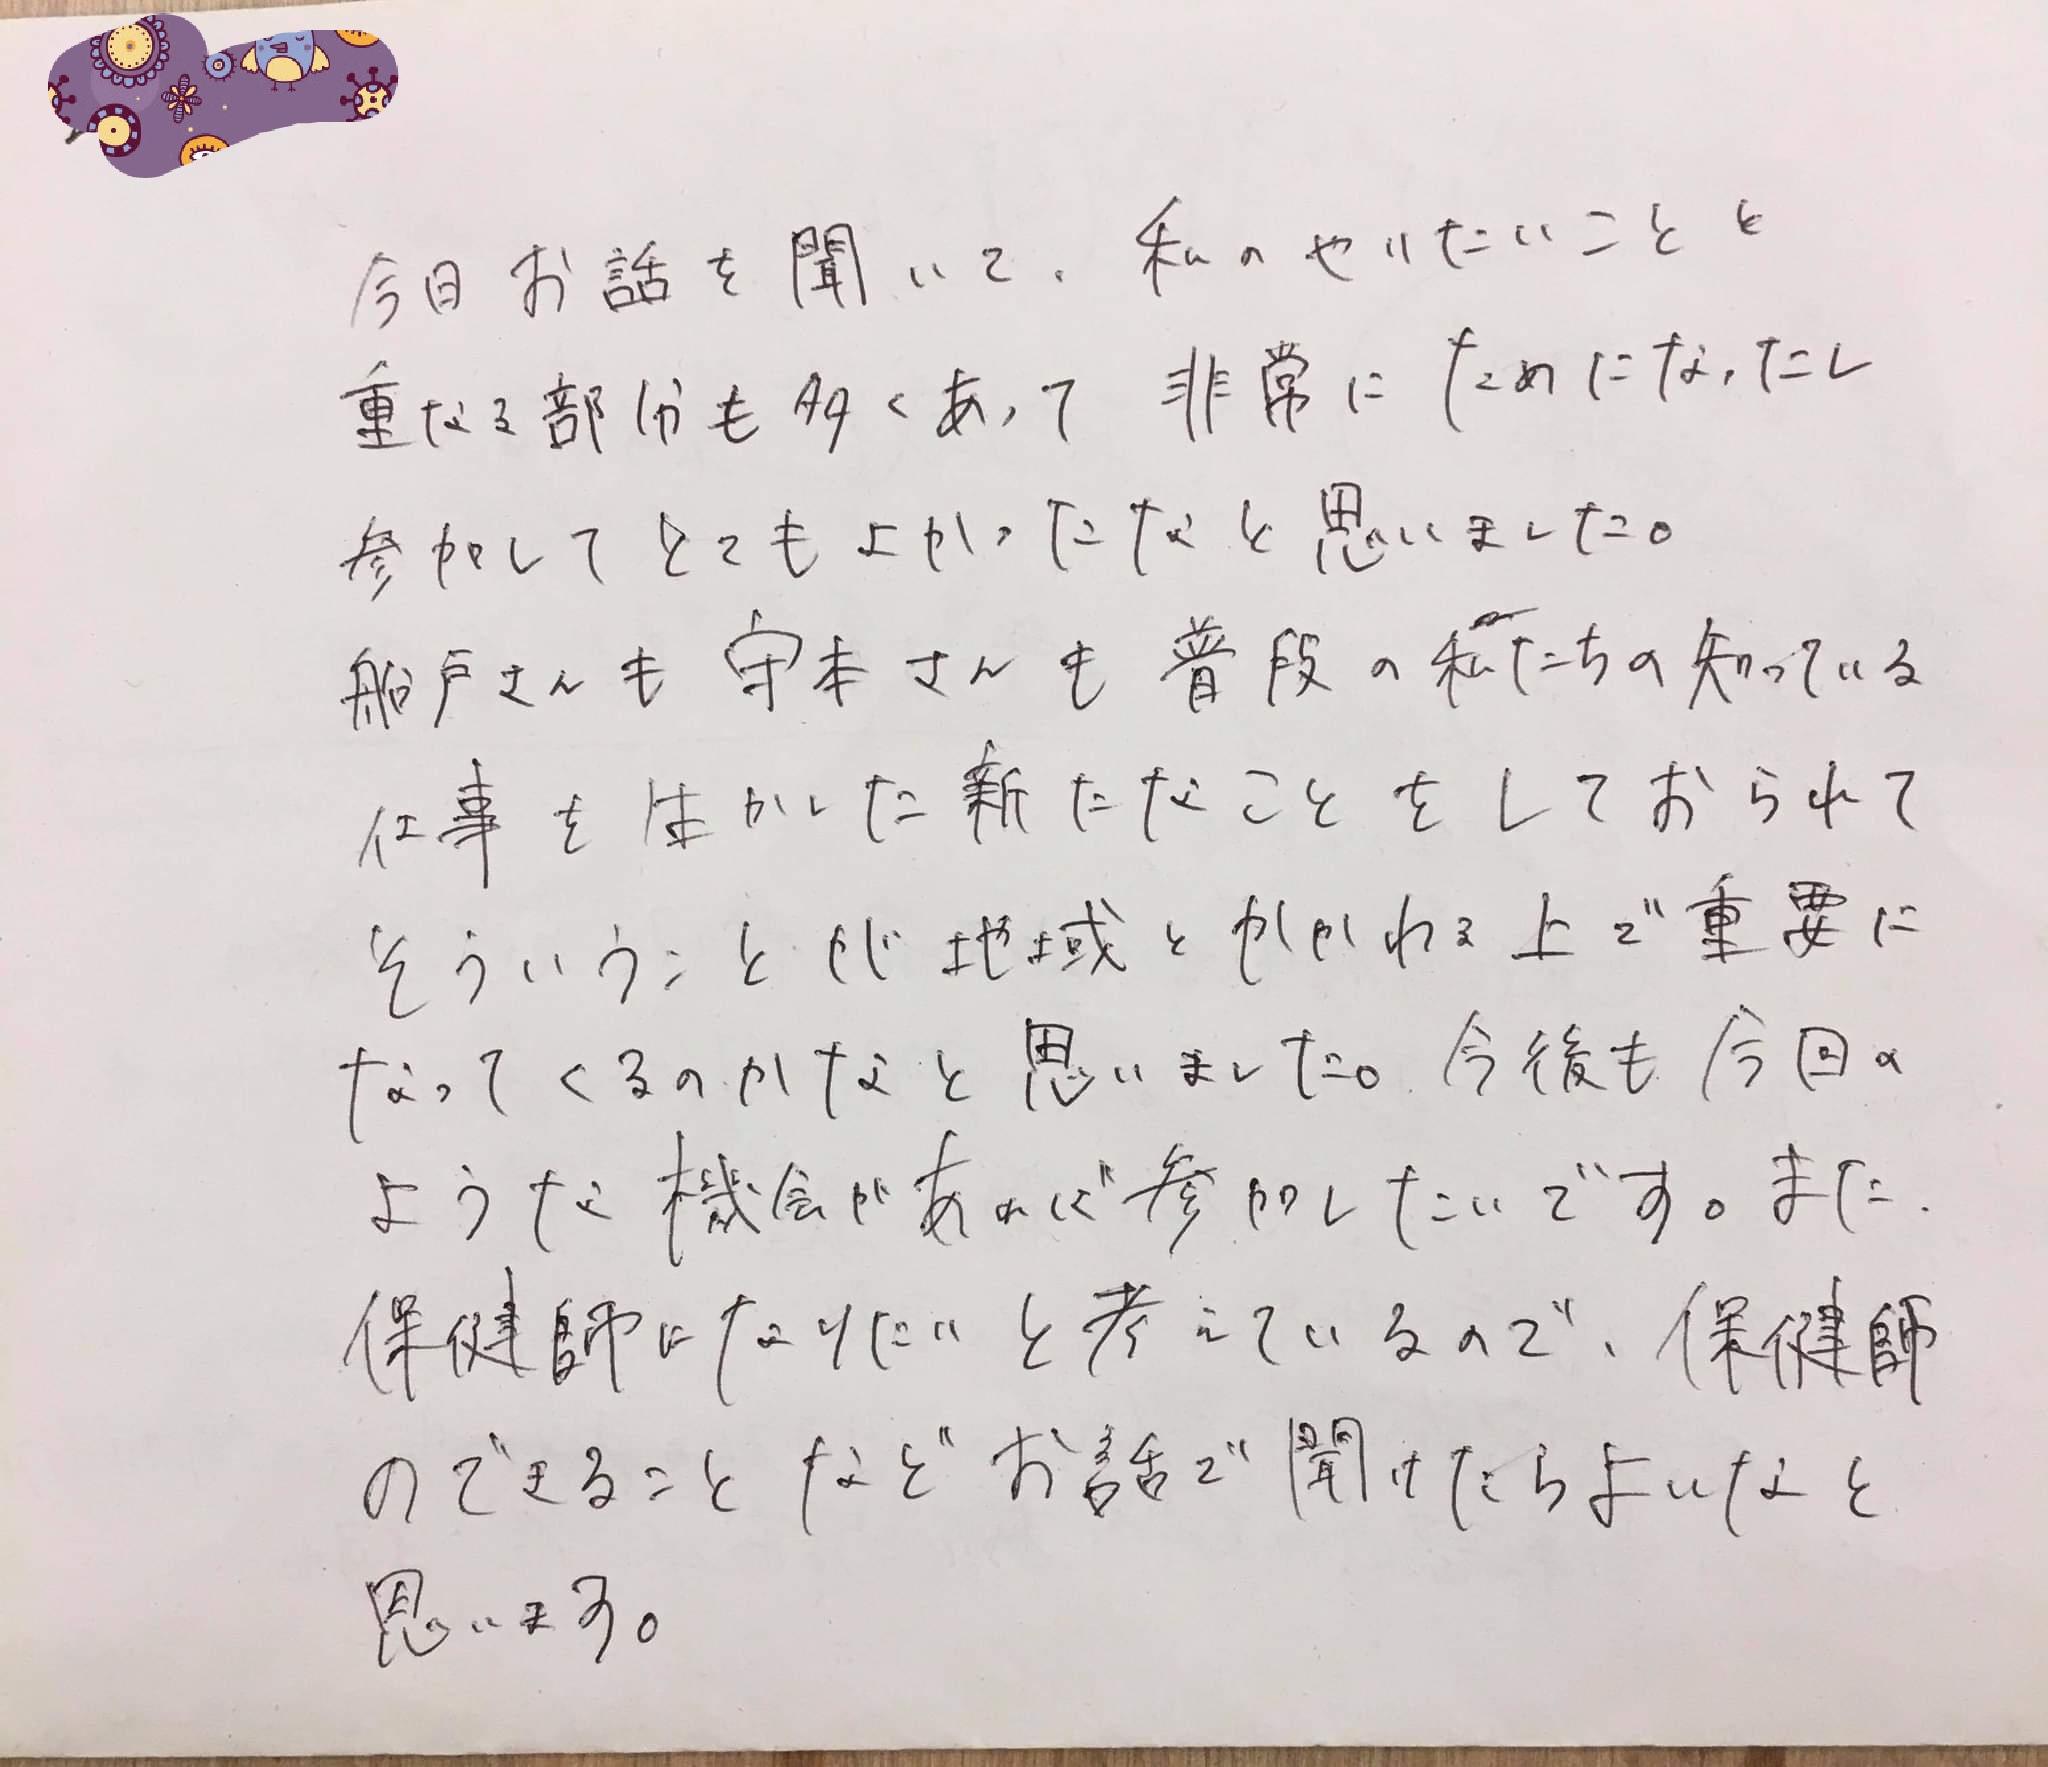 今日お話を聞いて、私のやりたいことと
重なる部分も多くあって非常にためになったし
参加してとてもよかったなと思いました。
船戸さんも守本さんも普段の私たちの知っている
仕事を生かした新たなことをしておられて
そういうことが地域とかかわる上で重要に
なってくるのかなと思いました。今後も今回の
ような機会があれば参加したいです。また、
保健師になりたいと考えているので、保健師
のできることなどお話で聞けたらよいなと
思います。